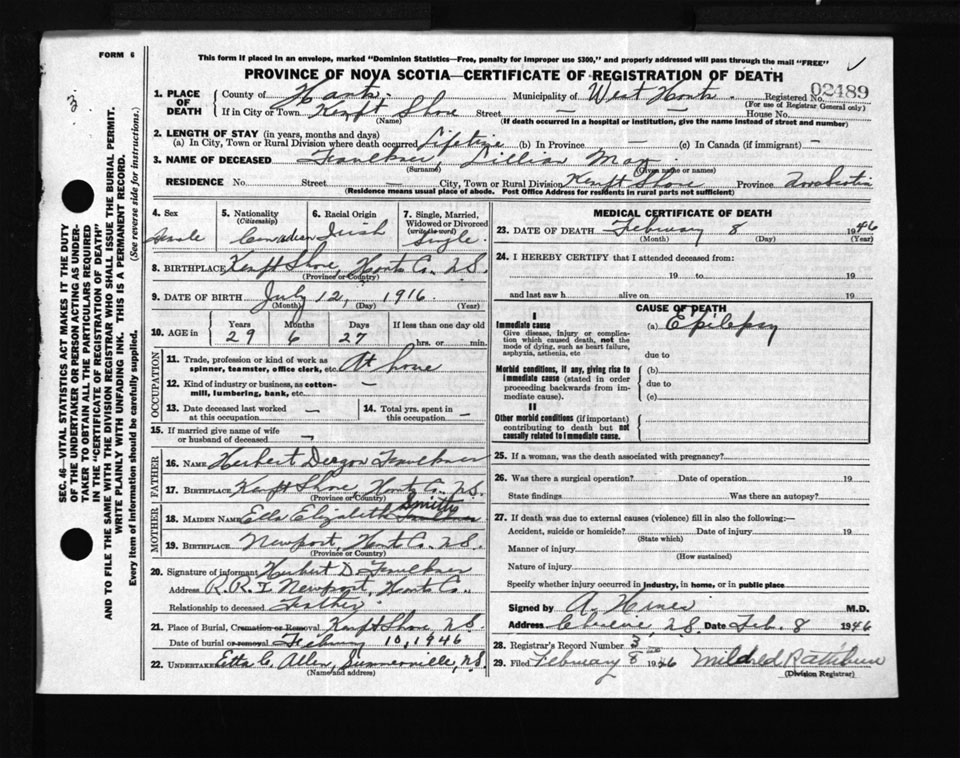 FORM 6
This form if placed in an envelope, marked "Dominion Statistics—Free, penalty for improper use $300," and properly addressed will pass through the mail "FREE"
PROVINCE OF NOVA SCOTIA—CERTIFICATE OF REGISTRATION OF DEATH
02489
3
SEC. 46—VITAL STATISTICS ACT MAKES IT THE DUTY
OF THE UNDERTAKER OR PERSON ACTING AS UNDER-
TAKER TO OBTAIN ALL THE PARTICULARS REQUIRED
IN THE "CERTIFICATE OF REGISTRATION OF DEATH"
AND TO FILE THE SAME WITH THE DIVISION REGISTRAR WHO SHALL ISSUE THE BURIAL PERMIT.
WRITE PLAINLY WITH UNFADING INK. THIS IS A PERMANENT RECORD.
Every item of information should be carefully supplied. (See reverse side for instructions.)
1. PLACE OF DEATH County of Hants. Municipality of West Hants. Registered No.
(For use of Registrar General only)
If in City or Town Kempt Shore Street — House No.
(Name) (If death occurred in a hospital or institution, give the name instead of street and number)
2. LENGTH OF STAY (in years, months and days)
(a) In City, Town or Rural Division where death occurred Lifetime (b) In Province — (c) In Canada (if immigrant) —
3. NAME OF DECEASED Faulkner, Lillian May
(Surname) (Given name or names)
RESIDENCE No. Street — City, Town or Rural Division Kempt Shore Province Nova Scotia
(Residence means usual place of abode. Post Office Address for residents in rural parts not sufficient)
4. Sex Female
5. Nationality (Citizenship) Canadian
6. Racial Origin Irish
7. Single, Married, Widowed or Divorced (write the word) Single.
8. BIRTHPLACE Kempt Shore, Hants Co. N.S.
(Province or Country)
9. DATE OF BIRTH July 12, 1916
(Month) (Day) (Year)
10. AGE in Years 29 Months 6 Days 27 If less than one day old hrs. or min.
OCCUPATION
11. Trade, profession or kind of work as spinner, teamster, office clerk, etc. At home
12. Kind of industry or business, as cotton-mill, lumbering, bank, etc. —
13. Date deceased last worked at this occupation —
14. Total yrs. spent in this occupation —
15. If married give name of wife or husband of deceased —
FATHER
16. Name Herbert Faulkner
17. Birthplace Kempt Shore, Hants Co. N.S.
(Province or Country)
MOTHER
18. Maiden Name Ella Elizabeth
19. Birthplace Newport, Hants Co. N.S.
(Province or Country)
20. Signature of informant Herbert D. Faulkner
Address R.R. 1 Newport, Hants Co.
Relationship to deceased Father
21. Place of Burial, Cremation or Removal Kempt Shore, N.S.
Date of burial or removal February 10, 1946
22. UNDERTAKER Etta C. Allen, Summerville, N.S.
(Name and address)
MEDICAL CERTIFICATE OF DEATH
23. DATE OF DEATH February 8 1946
(Month) (Day) (Year)
24. I HEREBY CERTIFY that I attended deceased from:
19 to 19
and last saw h alive on 19
CAUSE OF DEATH
I
Immediate cause
Give disease, injury or complica-
tion which caused death, not the
mode of dying, such as heart failure,
asphyxia, asthenia, etc
(a) Epilepsy
due to
Morbid conditions, if any, giving rise to
immediate cause (stated in order
proceeding backwards from im-
mediate cause).
(b)
due to
(c)
II
Other morbid conditions (if important)
contributing to death but not
causally related to immediate cause.
25. If a woman, was the death associated with pregnancy?
26. Was there a surgical operation? Date of operation 19
State findings Was there an autopsy?
27. If death was due to external causes (violence) fill in also the following:—
Accident, suicide or homicide? Date of injury 19
(State which)
Manner of injury
(How sustained)
Nature of injury
Specify whether injury occurred in industry, in home, or in public place
Signed by A. M.D.
Address N.S. Date Feb. 8 1946
28. Registrar's Record Number 3
29. Filed February 8 1946 Mildred Rathbun
(Division Registrar)